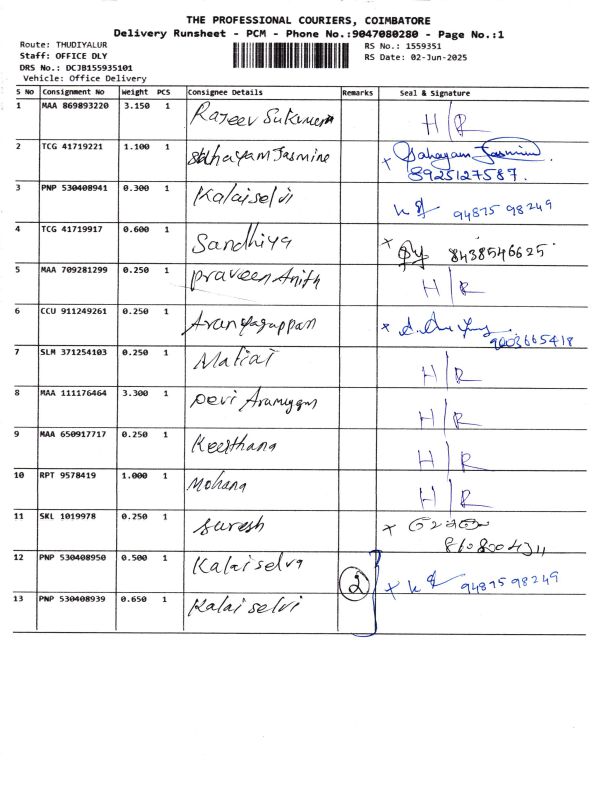 THE PROFESSIONAL COURIERS, COIMBATORE
Delivery Runsheet - PCM - Phone No.:9047080280 - Page No.:1
Route: THUDIYALUR
Staff: OFFICE DLY
DRS No.: DCJB155935101
Vehicle: Office Delivery
RS No.: 1559351
RS Date: 02-Jun-2025
S No Consignment No Weight PCS Consignee Details Remarks Seal & Signature
1 MAA 869893220 3.150 1 Rajeev Sukumar H/R
2 TCG 41719221 1.100 1 Sahayam Jasmine x Sahayam Jasmine
8925127587.
3 PNP 530408941 0.300 1 Kalaiselvi 94875 98249
4 TCG 41719917 0.600 1 Sandhiya x 8438546625
5 MAA 709281299 0.250 1 Praveen Anith H/R
6 CCU 911249261 0.250 1 x 9003665418
7 SLM 371254103 0.250 1 H/R
8 MAA 111176464 3.300 1 Devi H/R
9 MAA 650917717 0.250 1 Keerthana H/R
10 RPT 9578419 1.000 1 Mohana H/R
11 SKL 1019978 0.250 1 Suresh x
12 PNP 530408950 0.500 1 Kalaiselva 2 x 94875 98249
13 PNP 530408939 0.650 1 Kalaiselvi